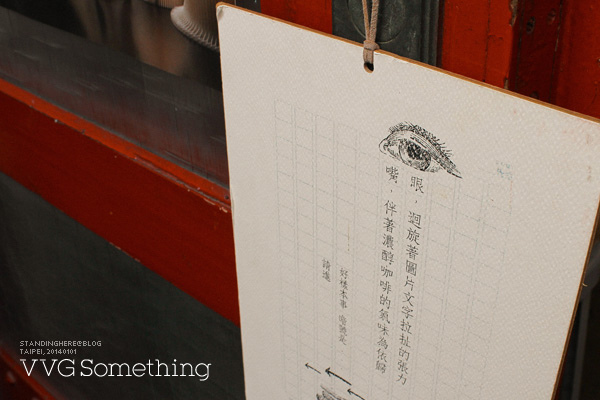 眼，迴旋著圖片文字拉扯的張力
嘴，伴著濃醇咖啡的氣味為依歸
好樣本事
請進
STANDINGHERE@BLOG
TAIPEI, 20140101
VVG Something